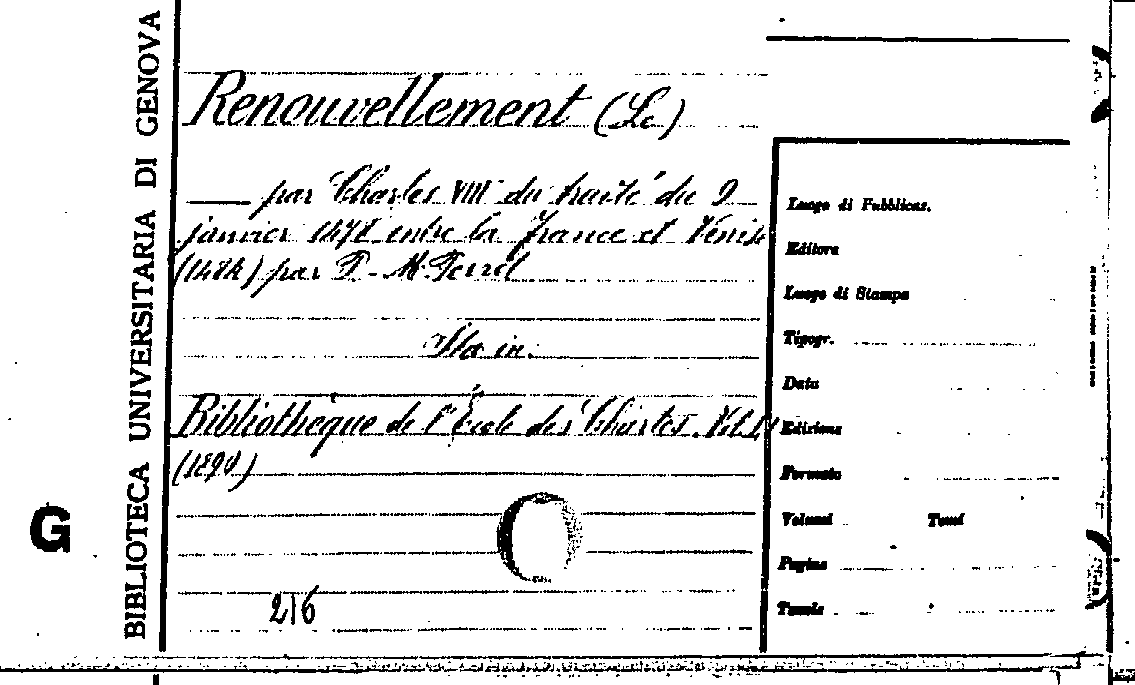 BIBLIOTECA UNIVERSITARIA DI GENOVA
G
Renouvellement (Le)
— par Charles VIII du traité du 9
janvier 1478 entre la France et Venise
(1484) par P. M. Perret
Sta in:
Bibliothèque de l'École des Chartes. Vol.
(1890)
216
Luogo di Pubblicaz.
Editore
Luogo di Stampa
Tipogr.
Data
Edizione
Formato
Volumi Tomi
Pagine
Tavole